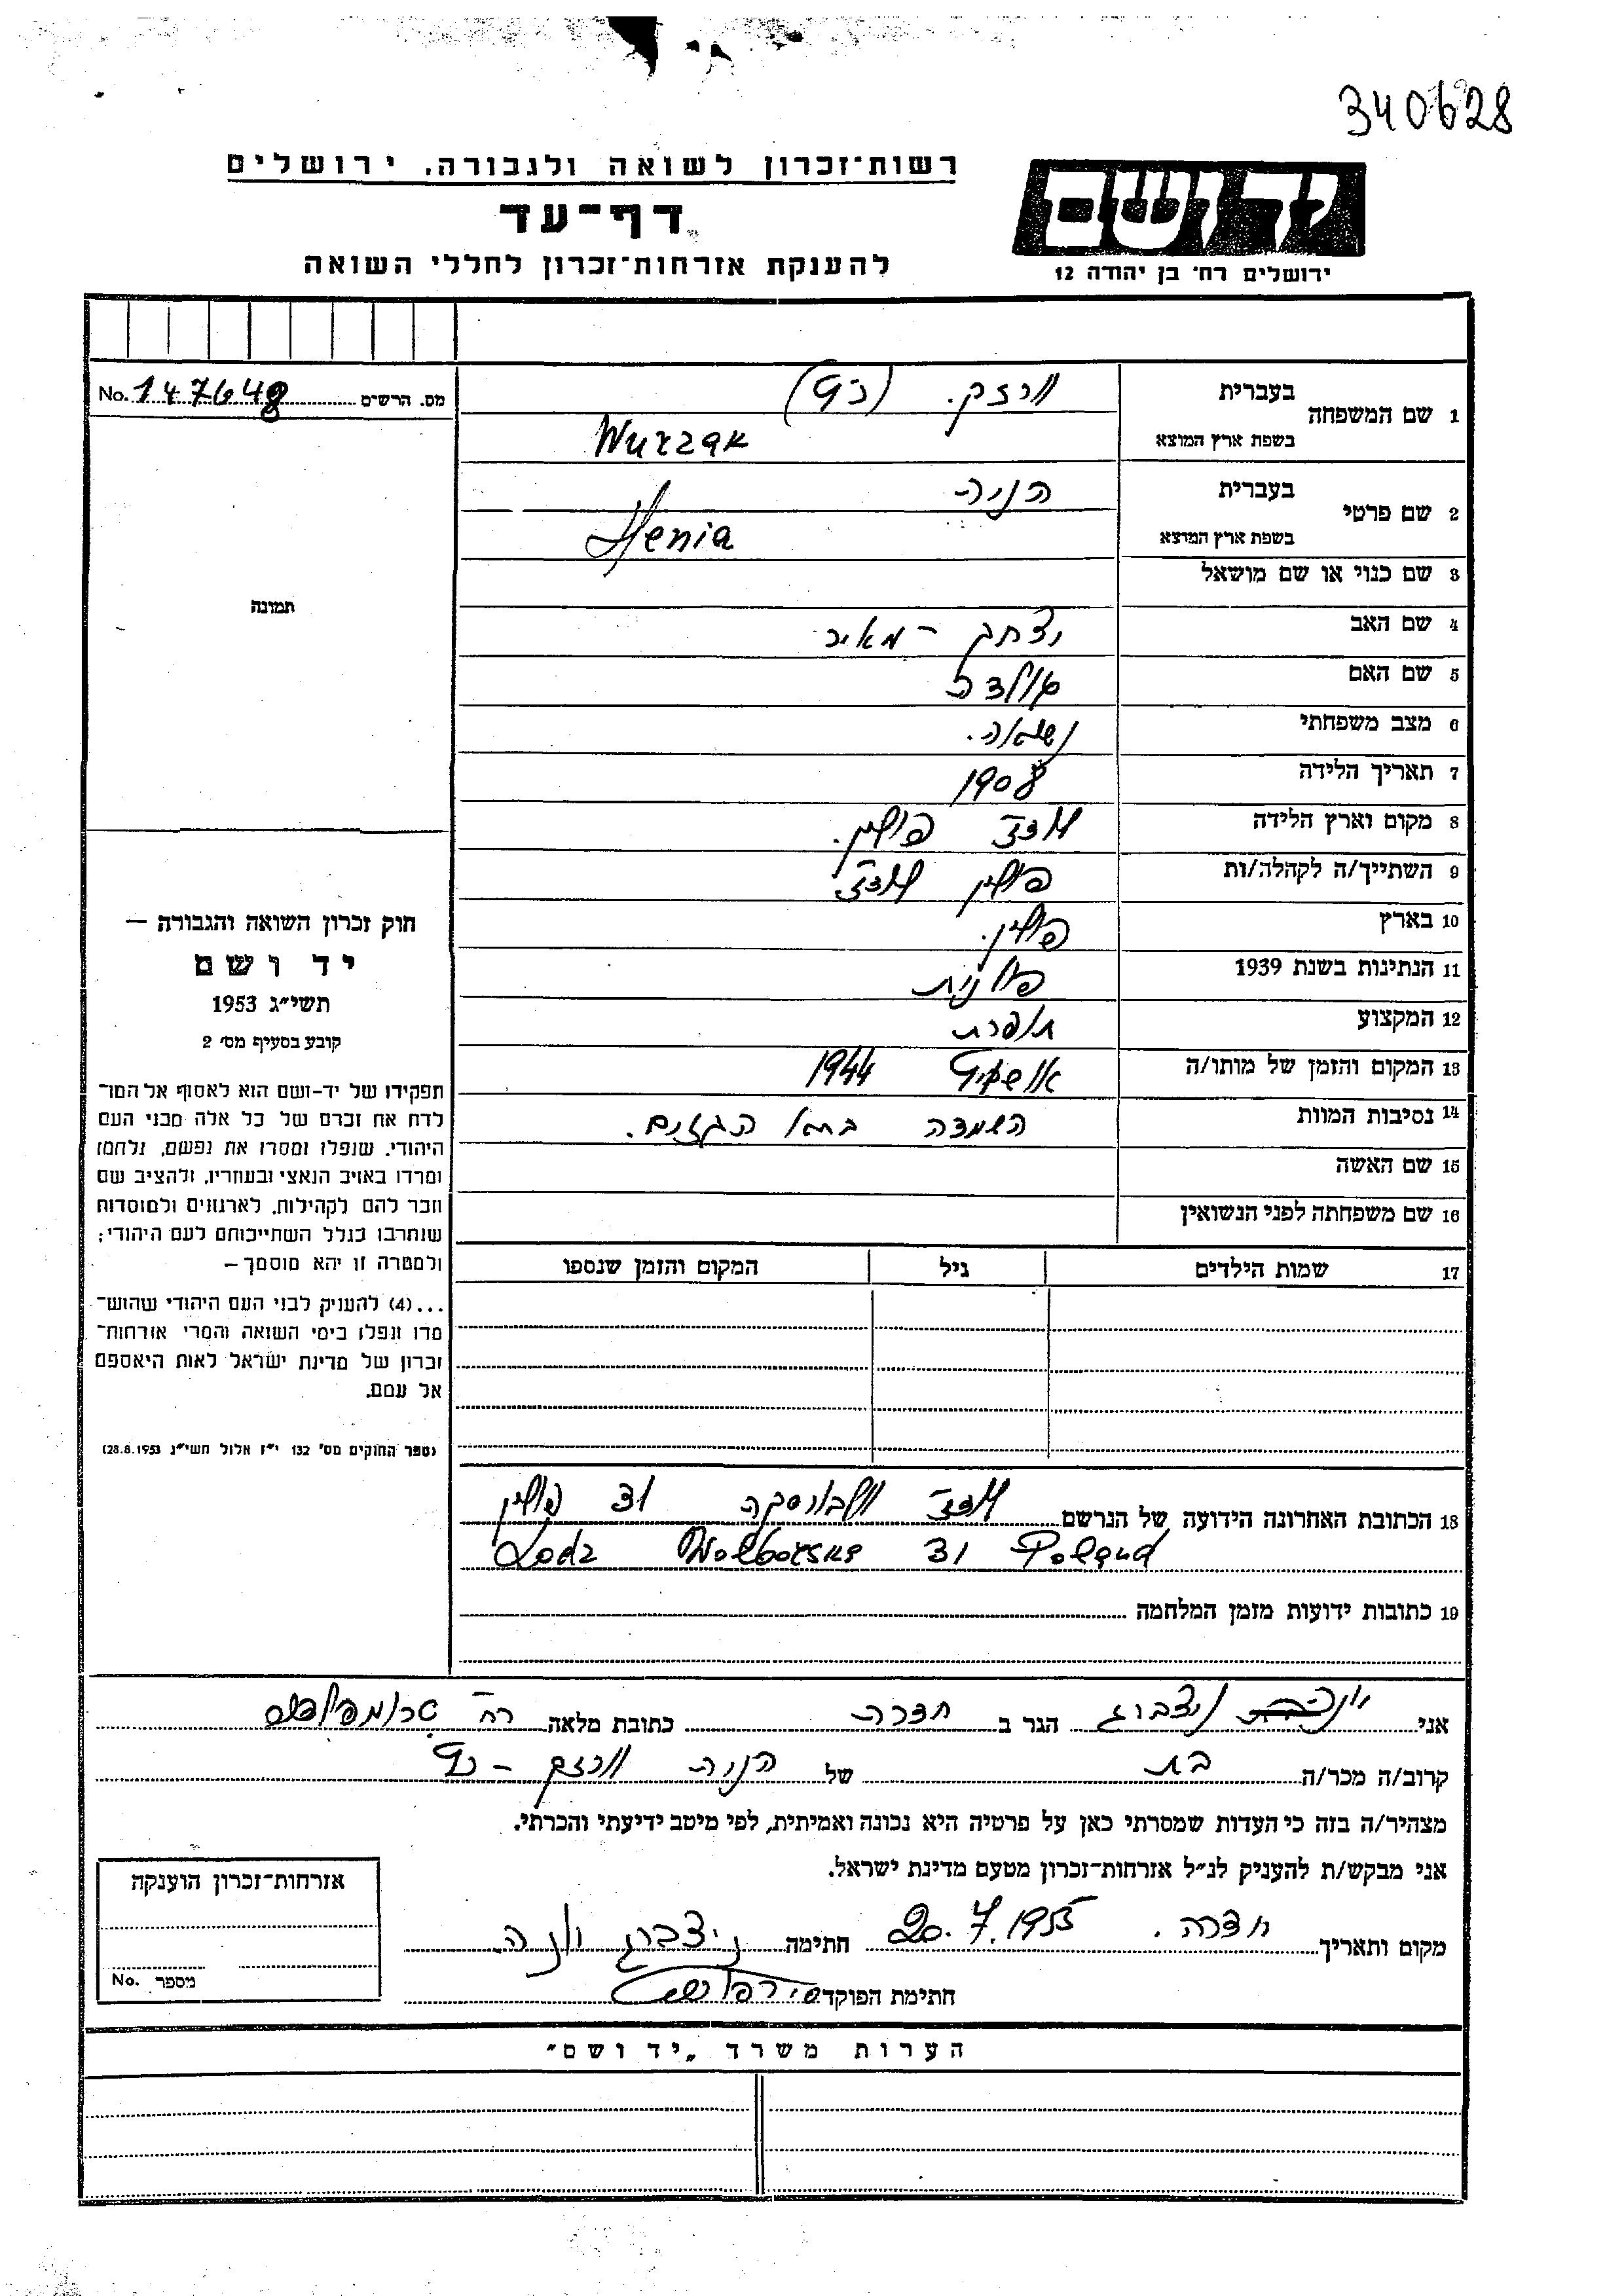 340628
רשות־זכרון לשואה ולגבורה, ירושלים
דף־עד
להענקת אזרחות־זכרון לחללי השואה
יד ושם
ירושלים רח׳ בן יהודה 12
מס. הרשום No. 147648
1 שם המשפחה
בעברית וורזק. (כץ)
בשפת ארץ המוצא Wurzak
2 שם פרטי
בעברית הניה
בשפת ארץ המוצא Henia
3 שם כנוי או שם מושאל
4 שם האב יצחק – מאיר
5 שם האם גולדה
6 מצב משפחתי נשואה.
7 תאריך הלידה 1908
8 מקום וארץ הלידה לודז׳ פולין.
9 השתייך/ה לקהלה/ות פולין לודז׳
10 בארץ פולין.
11 הנתינות בשנת 1939 פולנית
12 המקצוע תופרת
13 המקום והזמן של מותו/ה 1944
14 נסיבות המוות הושמדה בתאי הגזים.
15 שם האשה
16 שם משפחתה לפני הנשואין
17 שמות הילדים גיל המקום והזמן שנספו
תמונה
חוק זכרון השואה והגבורה —
יד ושם
תשי״ג 1953
קובע בסעיף מס׳ 2
תפקידו של יד-ושם הוא לאסוף אל המו־
לדת את זכרם של כל אלה מבני העם
היהודי, שנפלו ומסרו את נפשם, נלחמו
ומרדו באויב הנאצי ובעוזריו, ולהציב שם
וזכר להם לקהילות, לארגונים ולמוסדות
שנחרבו בגלל השתייכותם לעם היהודי;
ולמטרה זו יהא מוסמך —
...(4) להעניק לבני העם היהודי שהוש־
מדו ונפלו בימי השואה והמרי אזרחות־
זכרון של מדינת ישראל לאות היאספם
אל עמם.
(ספר החוקים מס׳ 132 י״ז אלול תשי״ג 28.8.1953)
18 הכתובת האחרונה הידועה של הנרשם לודז׳ וולבורסקה 31 פולין
Lodz Wolborska 31 Poland
19 כתובות ידועות מזמן המלחמה
אני ניצברג הגר ב חדרה כתובת מלאה רח׳ טרומפלדור
קרוב/ה מכר/ה בת של הניה וורזק – כץ
מצהיר/ה בזה כי העדות שמסרתי כאן על פרטיה היא נכונה ואמיתית, לפי מיטב ידיעתי והכרתי.
אני מבקש/ת להעניק לנ״ל אזרחות-זכרון מטעם מדינת ישראל.
מקום ותאריך חדרה. 20.7.1955 חתימה ניצברג
חתימת הפוקד
אזרחות־זכרון הוענקה
מספר No.
הערות משרד „יד ושם״